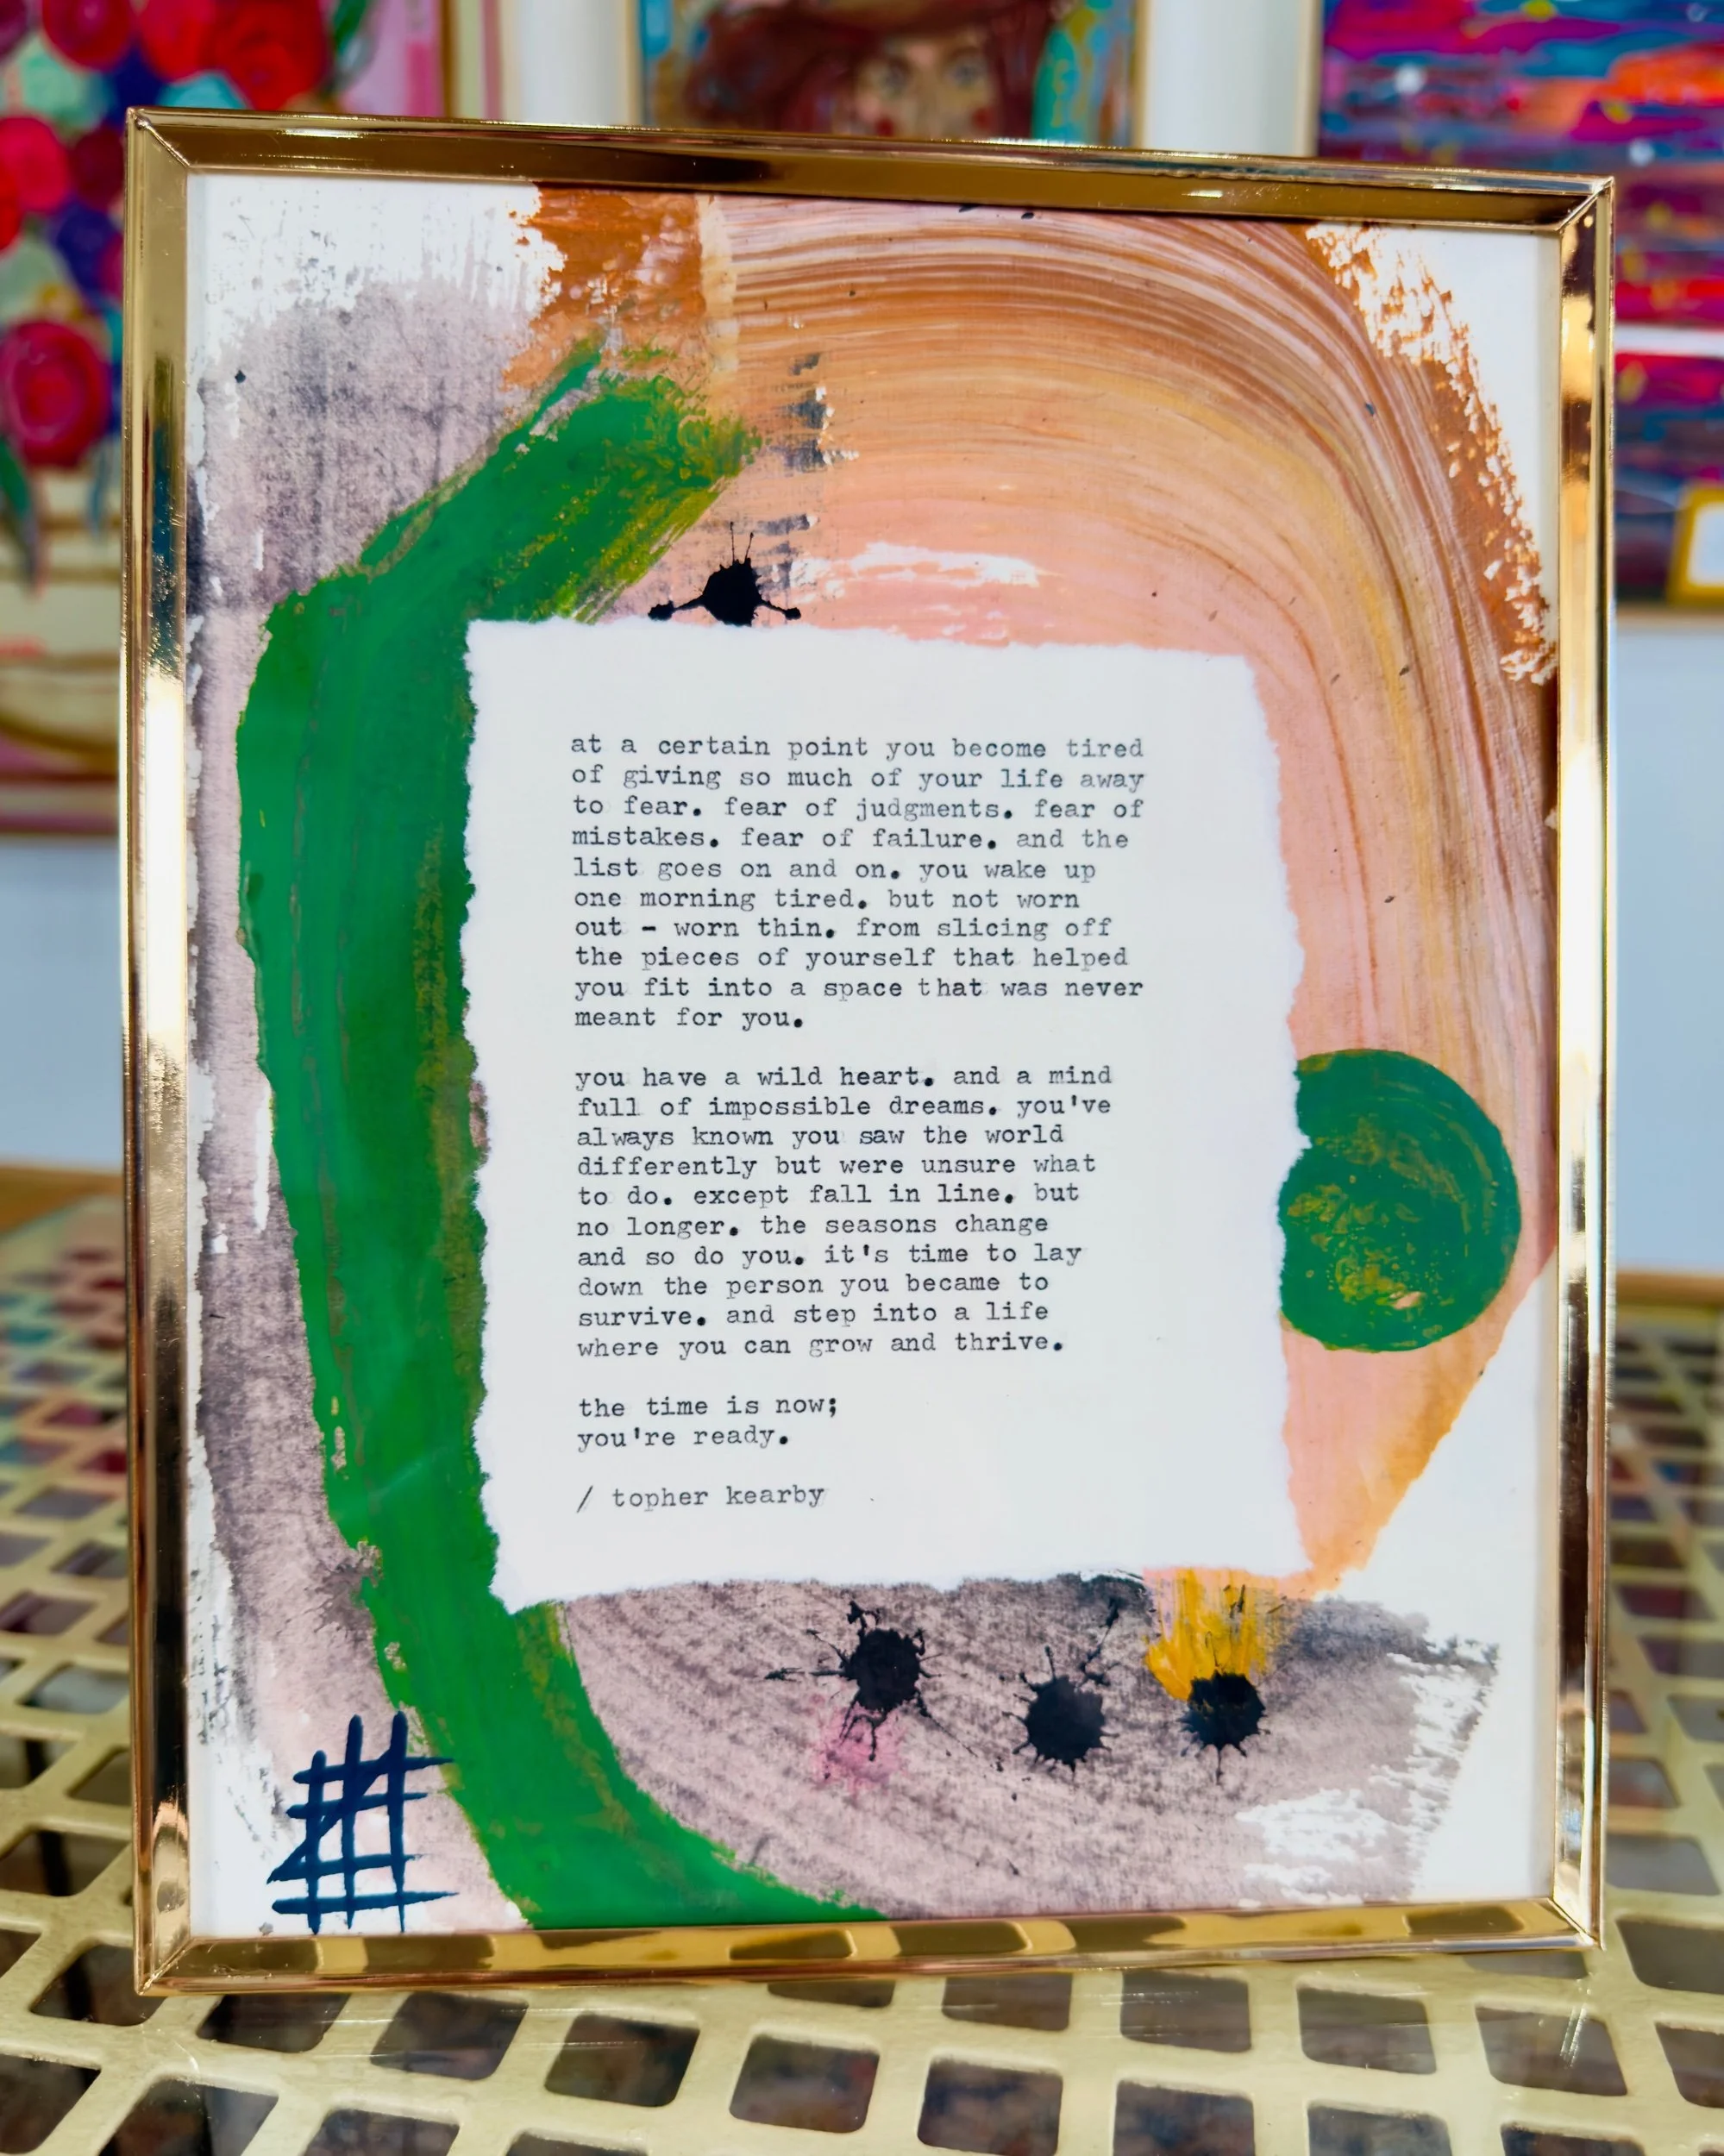 at a certain point you become tired
of giving so much of your life away
to fear. fear of judgments. fear of
mistakes. fear of failure. and the
list goes on and on. you wake up
one morning tired. but not worn
out - worn thin. from slicing off
the pieces of yourself that helped
you fit into a space that was never
meant for you.
you have a wild heart. and a mind
full of impossible dreams. you've
always known you saw the world
differently but were unsure what
to do. except fall in line. but
no longer. the seasons change
and so do you. it's time to lay
down the person you became to
survive. and step into a life
where you can grow and thrive.
the time is now;
you're ready.
/ topher kearby